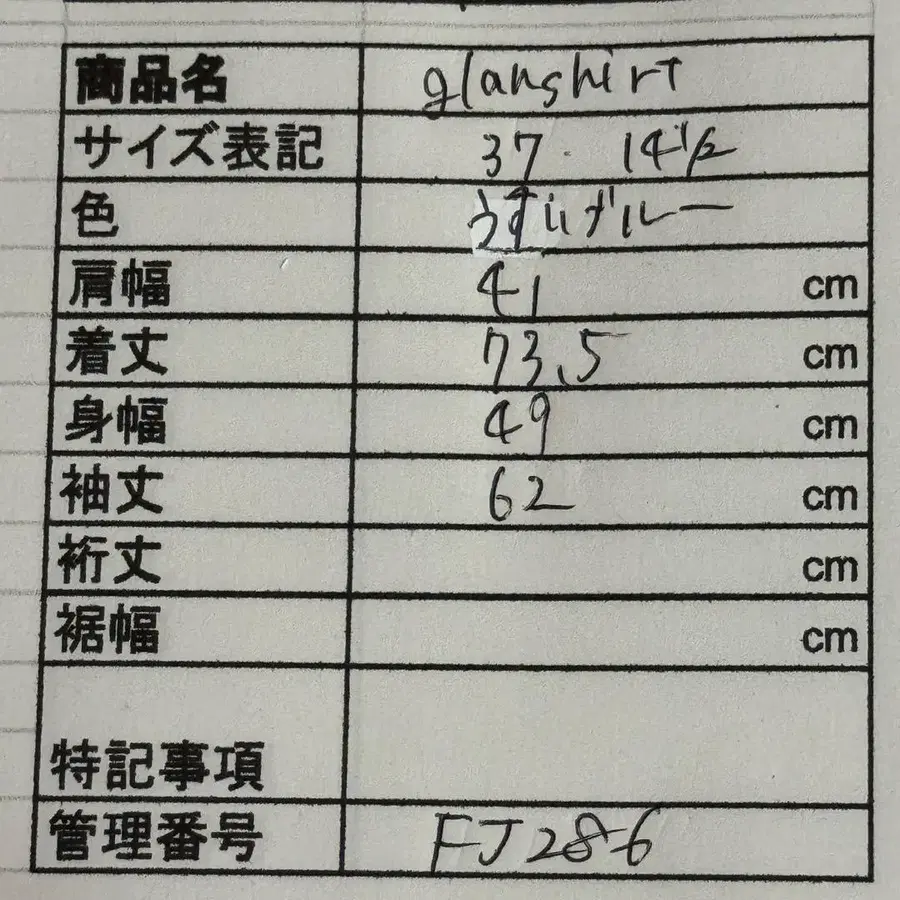 商品名 glanshirt
サイズ表記 37 14 1/2
色 うすいブルー
肩幅 41 cm
着丈 73.5 cm
身幅 49 cm
袖丈 62 cm
裄丈 cm
裾幅 cm
特記事項
管理番号 FJ286